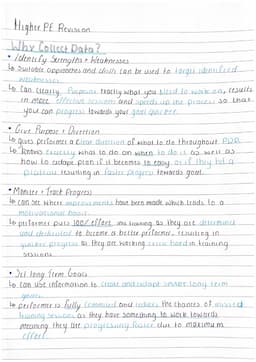 Higher PE Revision
Why Collect Data?
• Identify Strengths + Weaknesses
↳ Suitable approaches and drills can be used to target identified
weaknesses.
↳ Can clearly Purpose exactly what you need to work on, results
in more effective sessions and speeds up the process so that
you can progress towards your goal quicker.
• Give Purpose + Direction
↳ gives performer a clear direction of what to do throughout PDP.
↳ knows exactly what to do on when to do it as well as
how to adapt plan if it becomes to easy or if they hit a
plateau resulting in faster progress towards goal.
• Monitor + Track Progress
↳ can see where improvements have been made which leads to a
motivational boost.
↳ performer puts 100% effort into training as they are determined
and dedicated to become a better performer, resulting in
quicker progress as they are working extra hard in training
sessions.
• Set long Term Goals
↳ Can use information to create and adapt smart long term
goals.
↳ performer is fully committed and reduces the chances of missed
training sessions as they have something to work towards
meaning they are progressing faster due to maximum
effort.